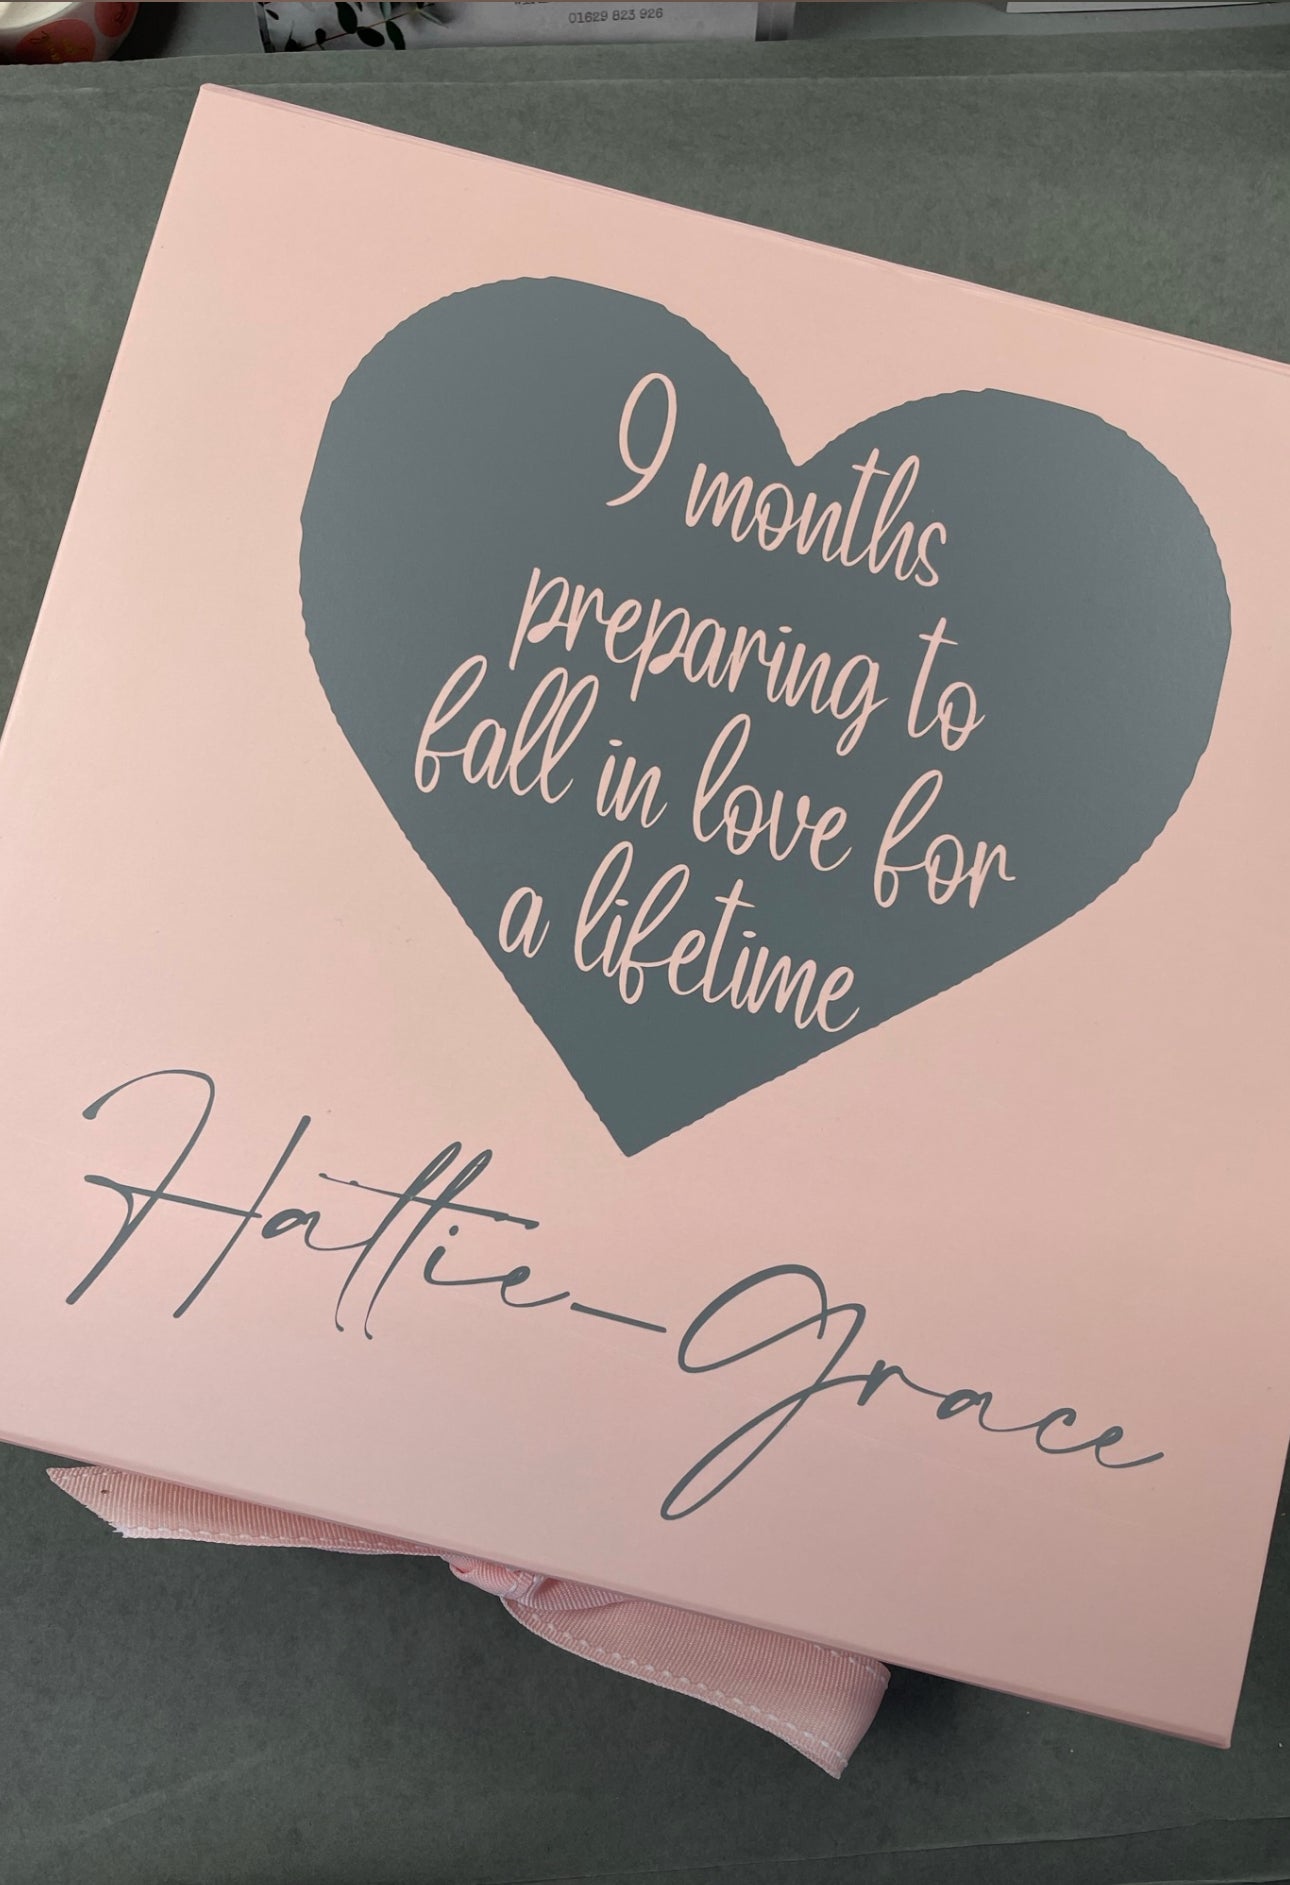 01629 823 926
9 months
preparing to
fall in love for
a lifetime
Hattie-Grace